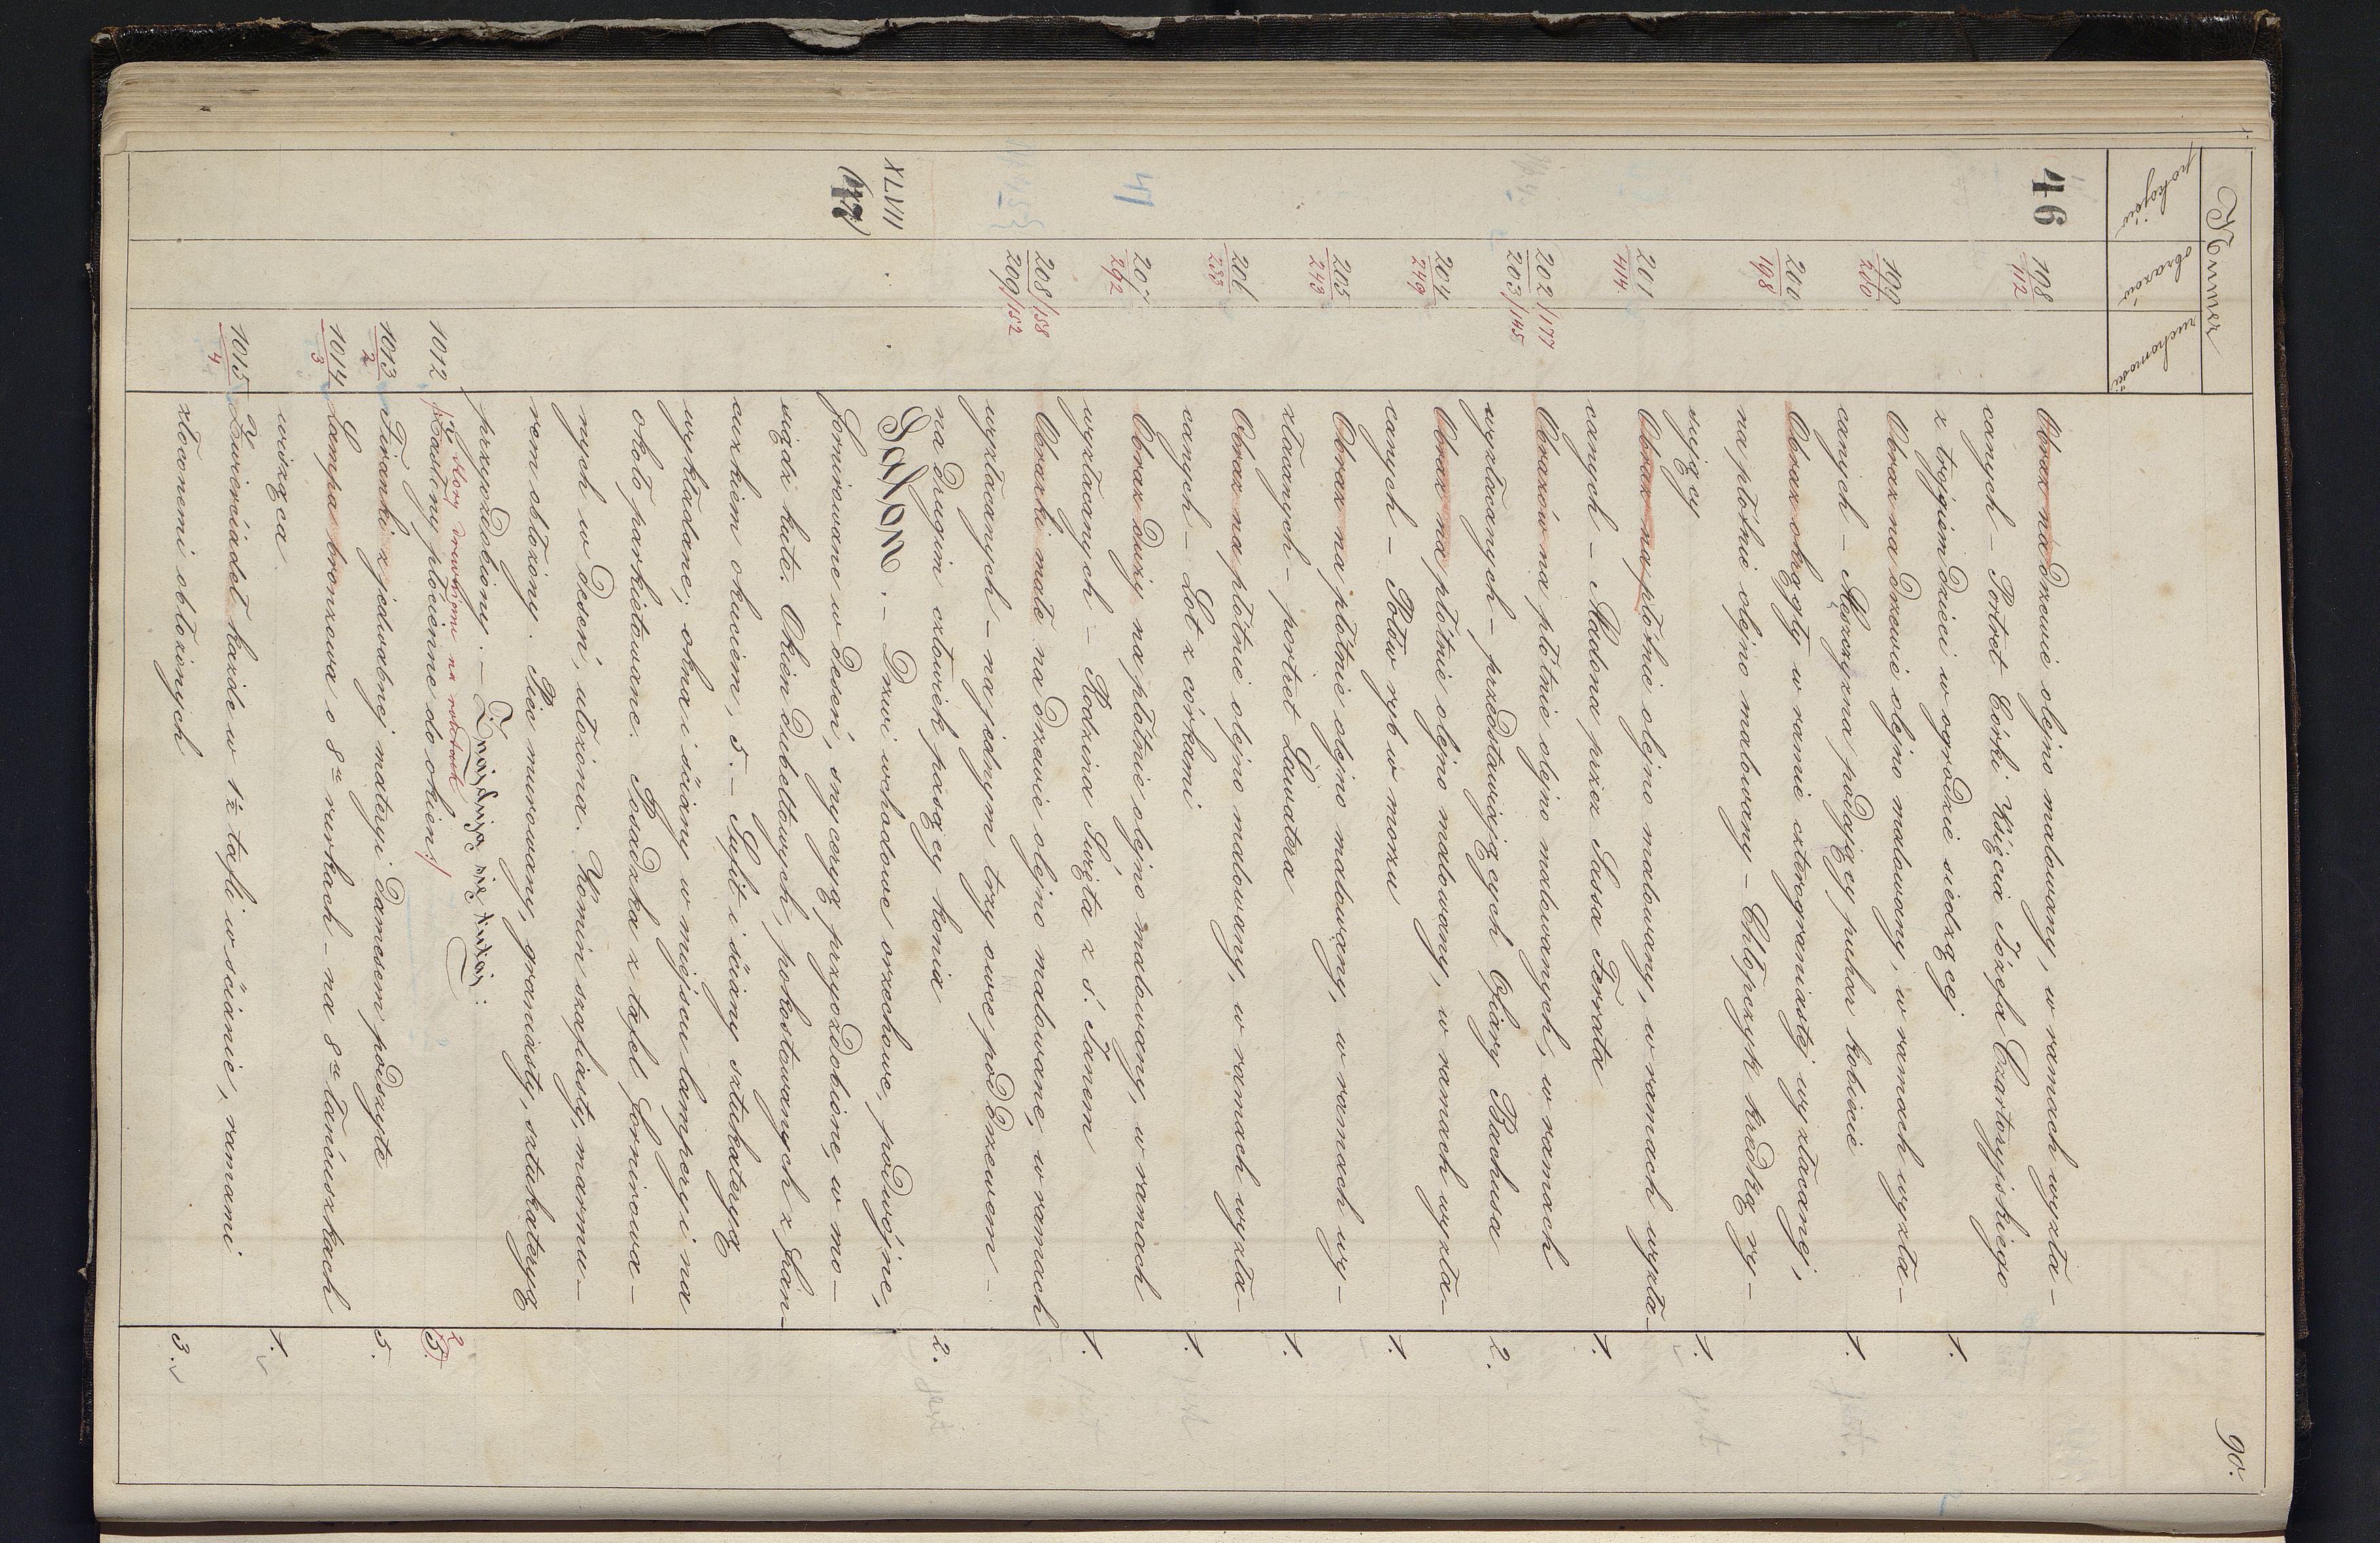 90.
Numer
pokojów obrazów ruchomości
46 198/112 Obraz na drzewie olejno malowany, w ramach wyzła-
canych – Portret Córki Księcia Józefa Czartoryjskiego
z trojgiem dzieci w ogrodzie siedzącej 1.
199/200 Obraz na drzewie olejno malowany, w ramach wyzła-
canych – Męzczyzna podający puhar kobiecie 1.
200/198 Obraz okrągły w ramie czterograniastej wyzłacanej,
na płótnie olejno malowany – Chłopczyk kredką ry-
sujący 1.
201/414 Obraz na płótnie olejno malowany, w ramach wyzła-
canych – Madona przez Sassa Ferrata 1.
202/177 Obrazów na płótnie olejno malowanych, w ramach
203/145 wyzłacanych – przedstawiających Ofiary Bachusa 2.
204/249 Obraz na płótnie olejno malowany, w ramach wyzła-
canych – Połów ryb w morzu 1.
205/243 Obraz na płótnie olejno malowany, w ramach wy-
złacanych – portret Lawatera 1.
206/233 Obraz na płótnie olejno malowany, w ramach wyzła-
canych – Lot z córkami 1.
47 207/262 Obraz duży na płótnie olejno malowany, w ramach
wyzłacanych – Rodzina Święta z ś. Janem 1.
208/158 Obrazki małe na drzewie olejno malowane, w ramach
209/152 wyzłacanych – na jednym trzy owce pod drzewem –
na drugim człowiek pasący konia 2.
XLVII Salon. – Drzwi wchodowe orzechowe, podwójne,
47 fornirowane w deseń, snyceryą przyozdobione, w mo-
siądz kute. Okien dubeltowych, pokostowanych z fran-
cuzkiem okuciem, 5. – Sufit i ściany sztukateryą
wykładane; okna i ściany w miejscu lamperyi na
około parkietowane. Posadzka z tafel fornirowa-
nych w deseń, ułożona. Komin szafiasty, marmu-
rem obłożony. Piec murowany, graniasty, sztukateryą
przyozdobiony. – Znajdują się tutaj:
Story drewniane na rolatach 2
1012 Zasłony płócienne do okien 5.
1013/2 Firanki z jedwabnej materyi damasem podszyte 5.
1014/3 Lampa bronzowa o 8u rurkach – na 8u łańcuszkach
wisząca 1.
1015/4 Zwierciadeł każde w 1½ tafli w ścianie, ramami
złoconemi obłożonych 3.